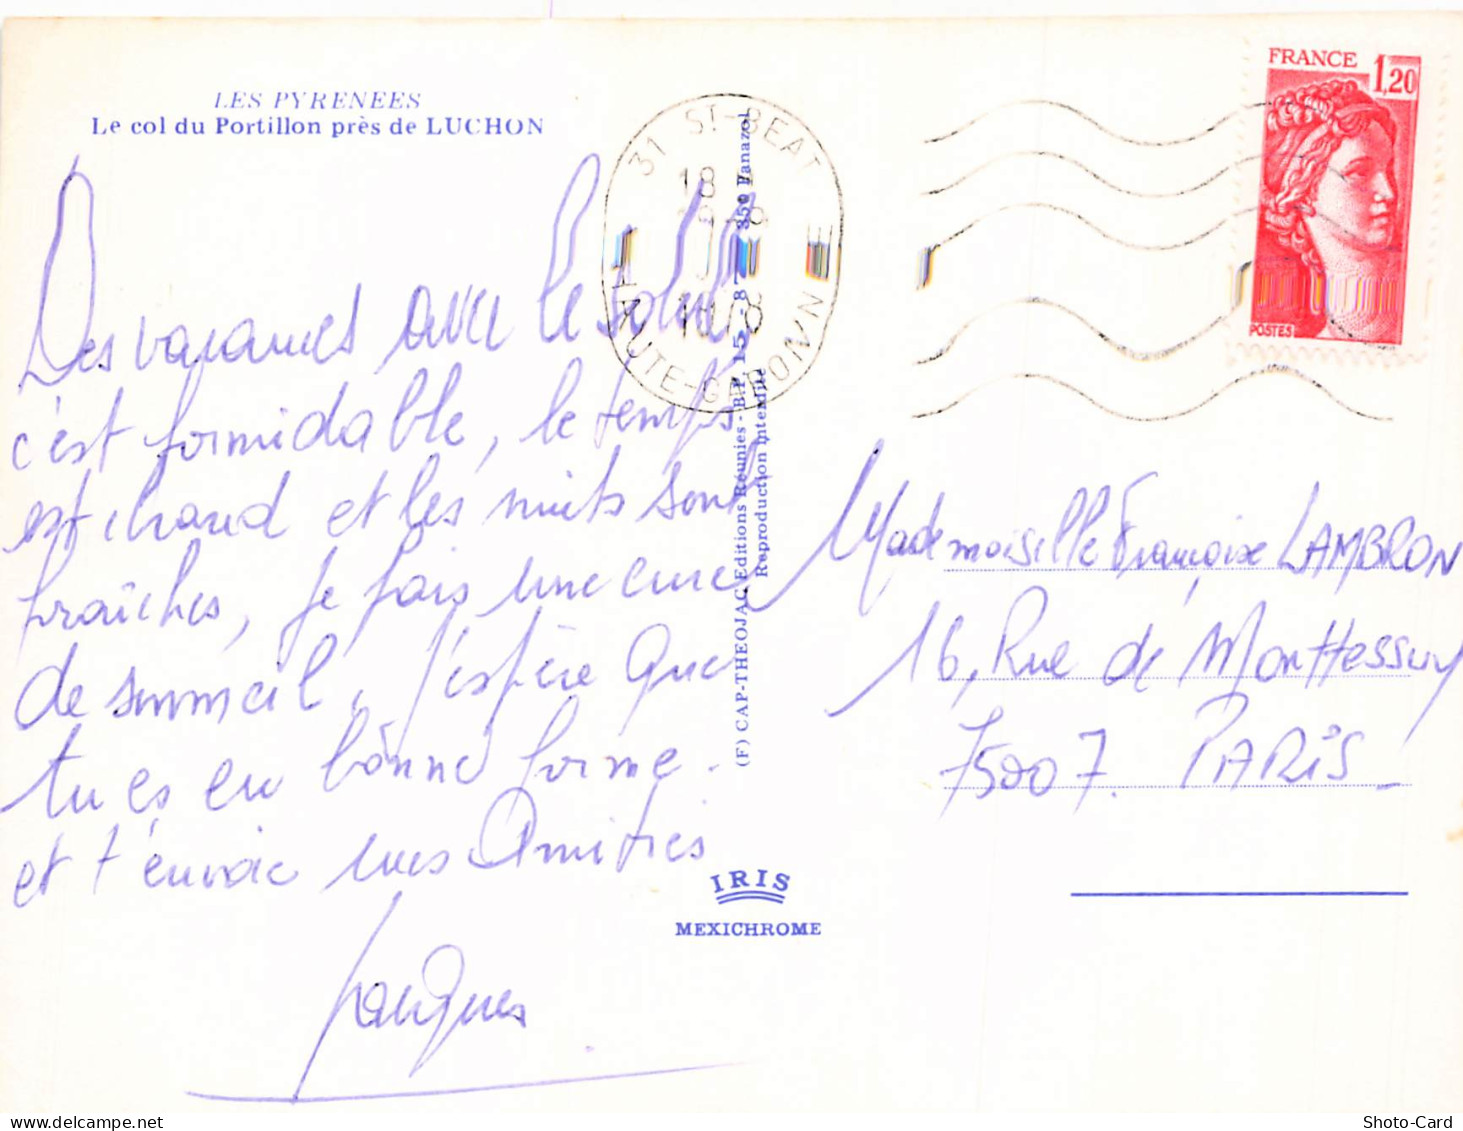 LES PYRENEES
Le col du Portillon près de LUCHON
Des vacances avec le soleil
c'est formidable, le temps
est chaud et les nuits sont
fraîches, je fais une cure
de sommeil, j'espère que
tu es en bonne forme.
et t'envoie mes Amitiés
Jacques
31 ST-BEAT
18
HAUTE-GARONNE
(F) CAP-THEOJAC, Editions Réunies - B.P. 15 - 87 350 Panazol
Reproduction interdite
IRIS
MEXICHROME
FRANCE 1,20
POSTES
Mademoiselle Françoise LAMBRON
16, Rue de Monttessuy
75007. PARIS
Shoto-Card